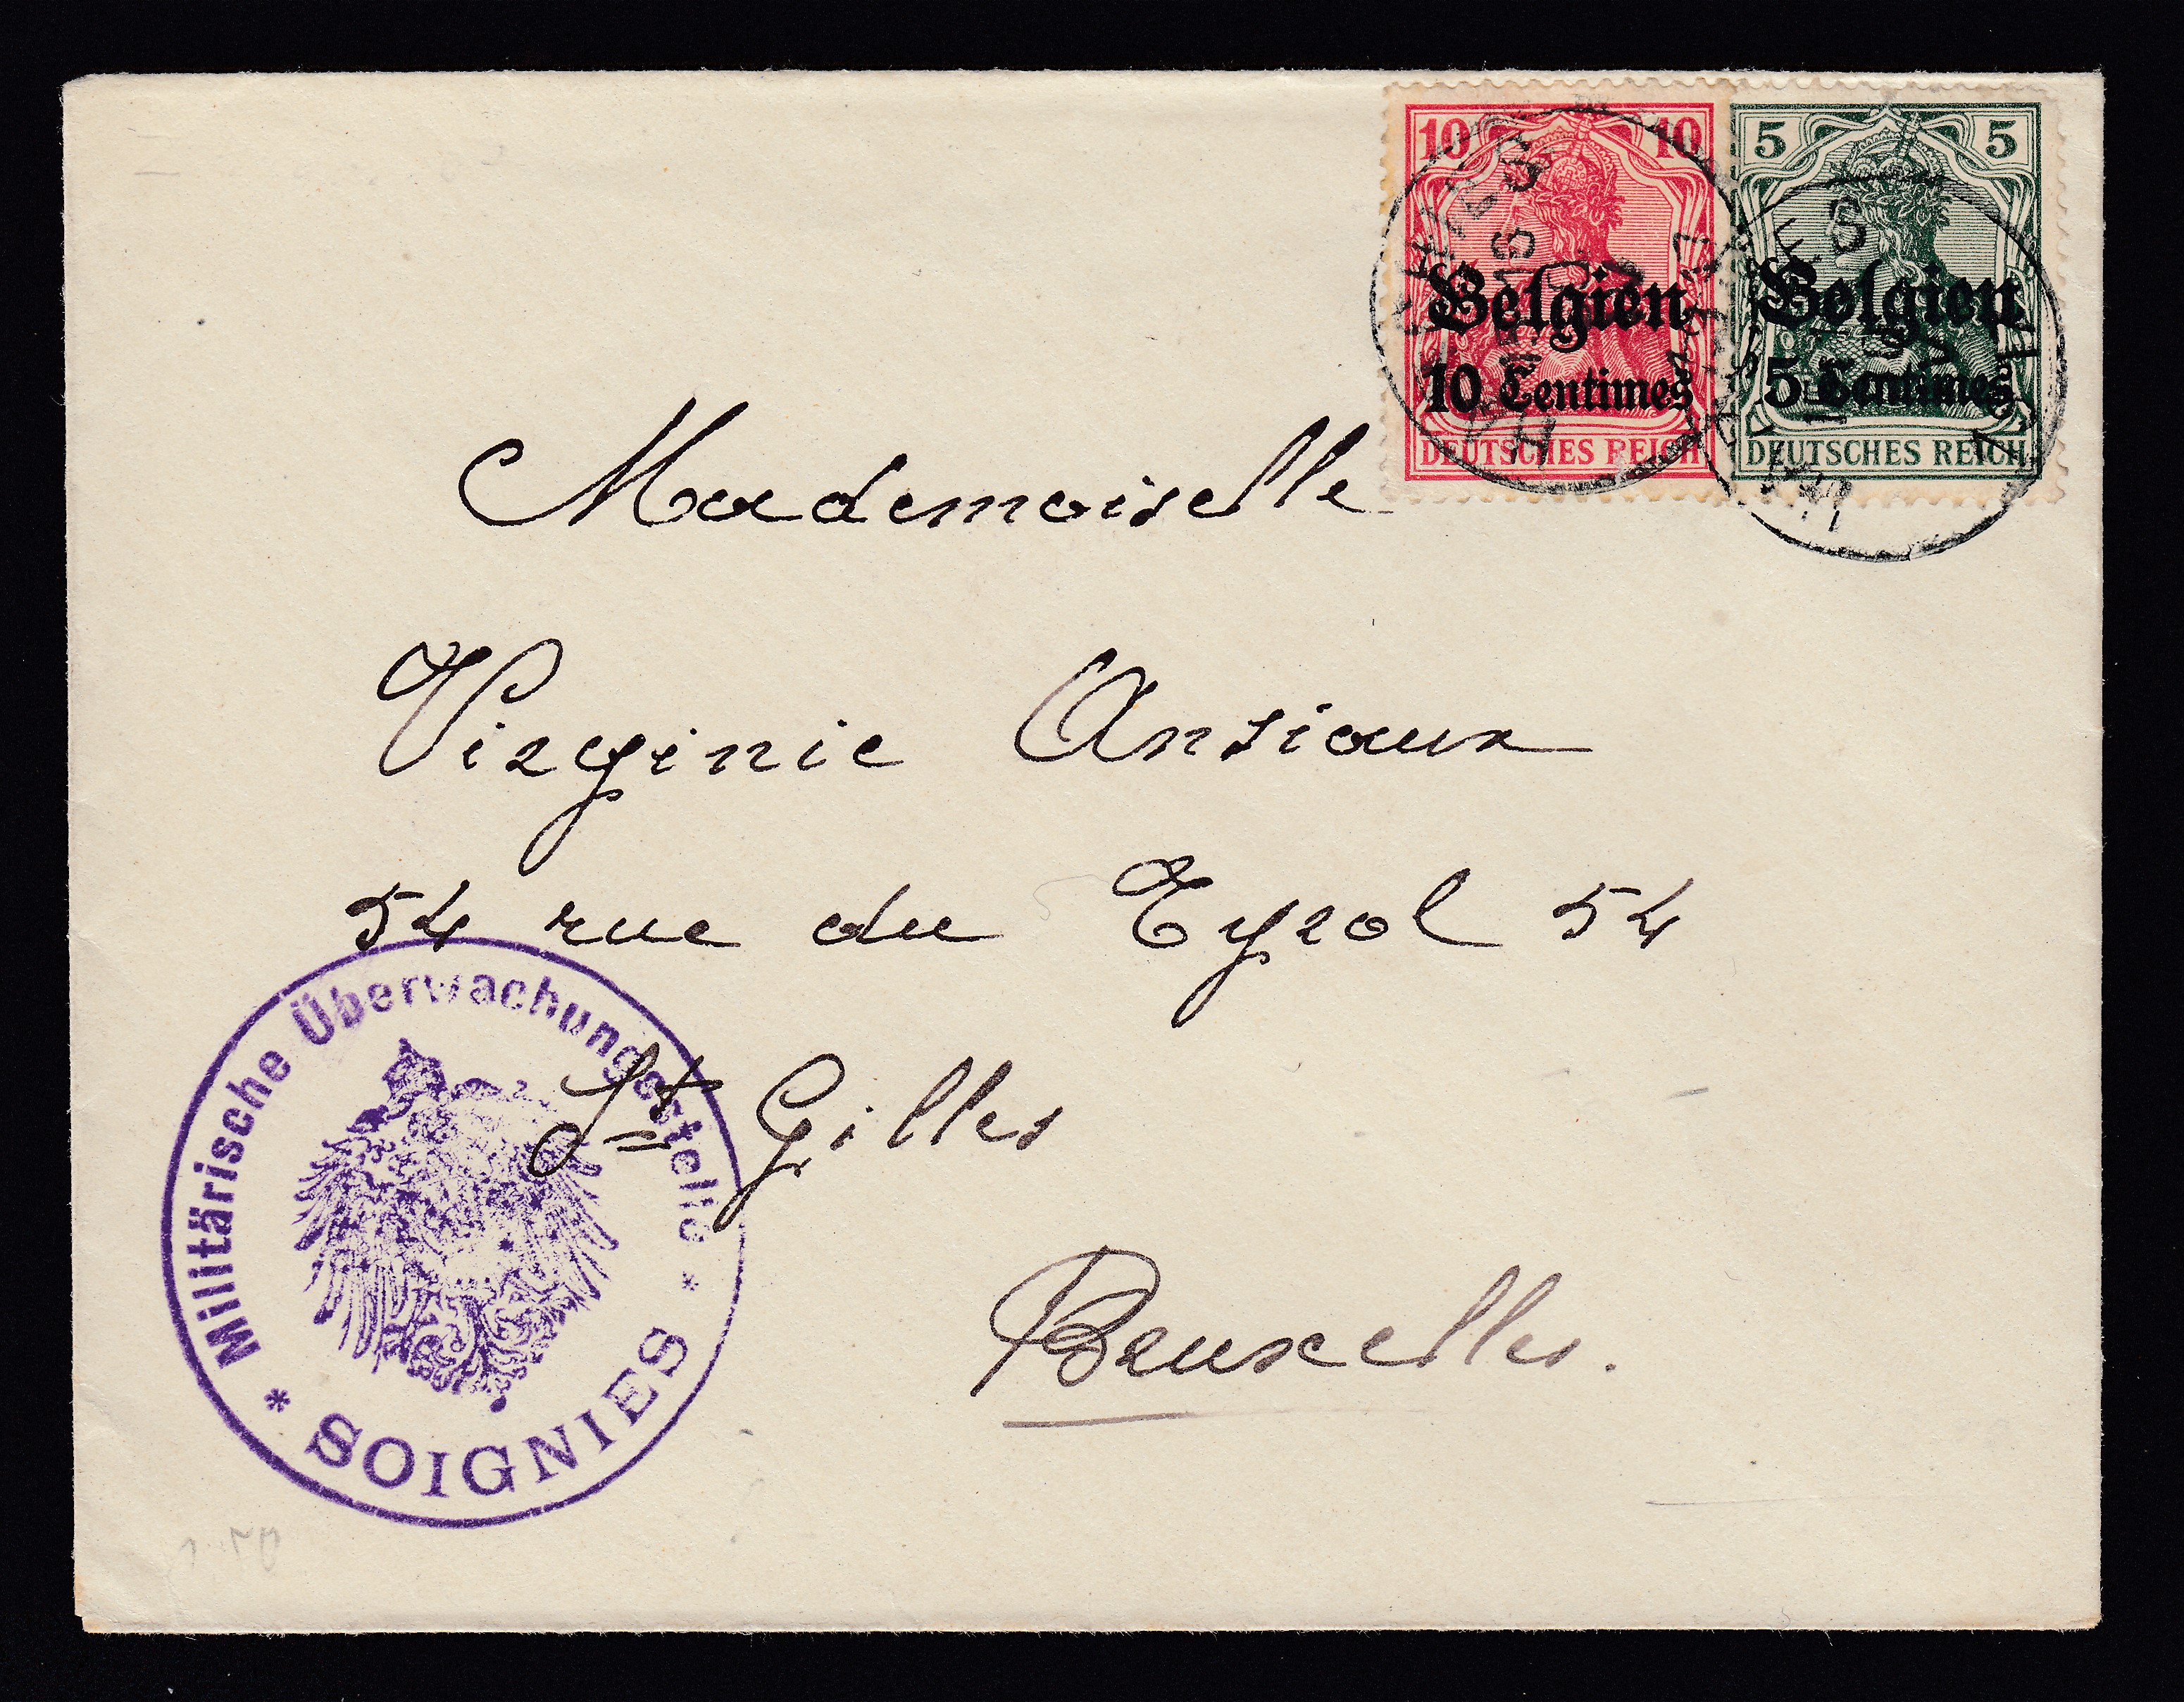 10 10
Belgien
10 Centimes
DEUTSCHES REICH
5 5
Belgien
5 Centimes
DEUTSCHES REICH
Mademoiselle
Virginie Ansiaux
54 rue du Tyrol 54
St Gilles
Bruxelles.
Militärische Überwachungsstelle
* SOIGNIES *